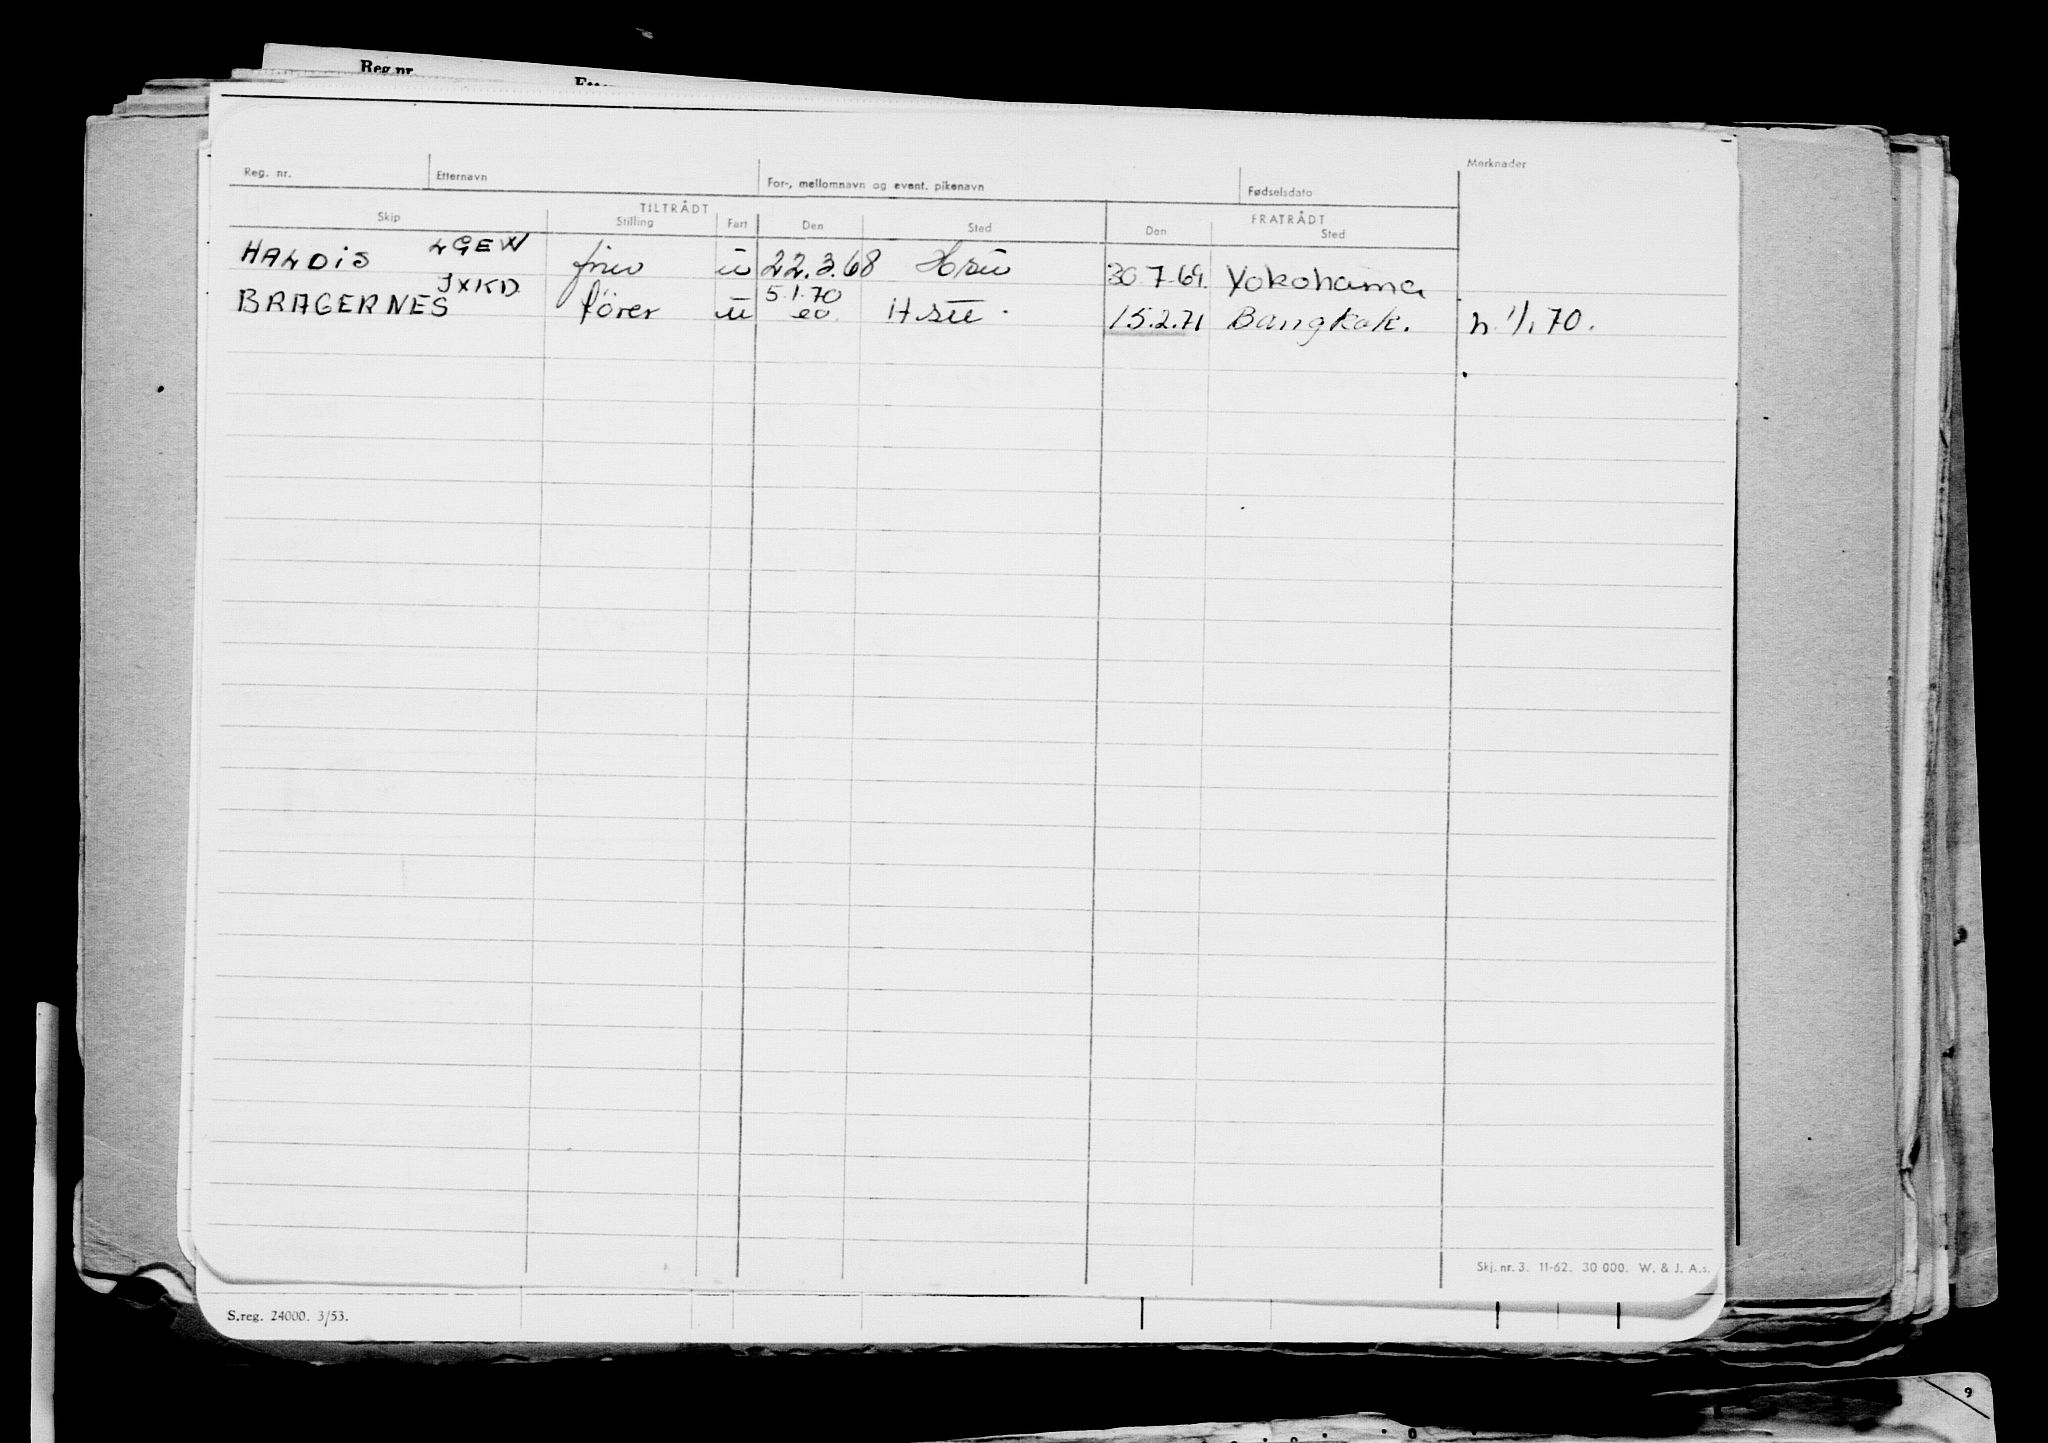 Reg. nr.
Reg. nr. Etternavn For-, mellomnavn og event. pikenavn Fødselsdato Merknader
TILTRÅDT FRATRÅDT
Skip Stilling Fart Den Sted Den Sted
HALDIS LGEW u 22.3.68 30.7.69. Yokohama
JXKD 5.1.70
BRAGERNES fører u 15.2.71 Bangkok. h 1/1 70.
Skj. nr. 3. 11-62. 30 000. W. & J. A.s.
S.reg. 24000. 3/53.
9